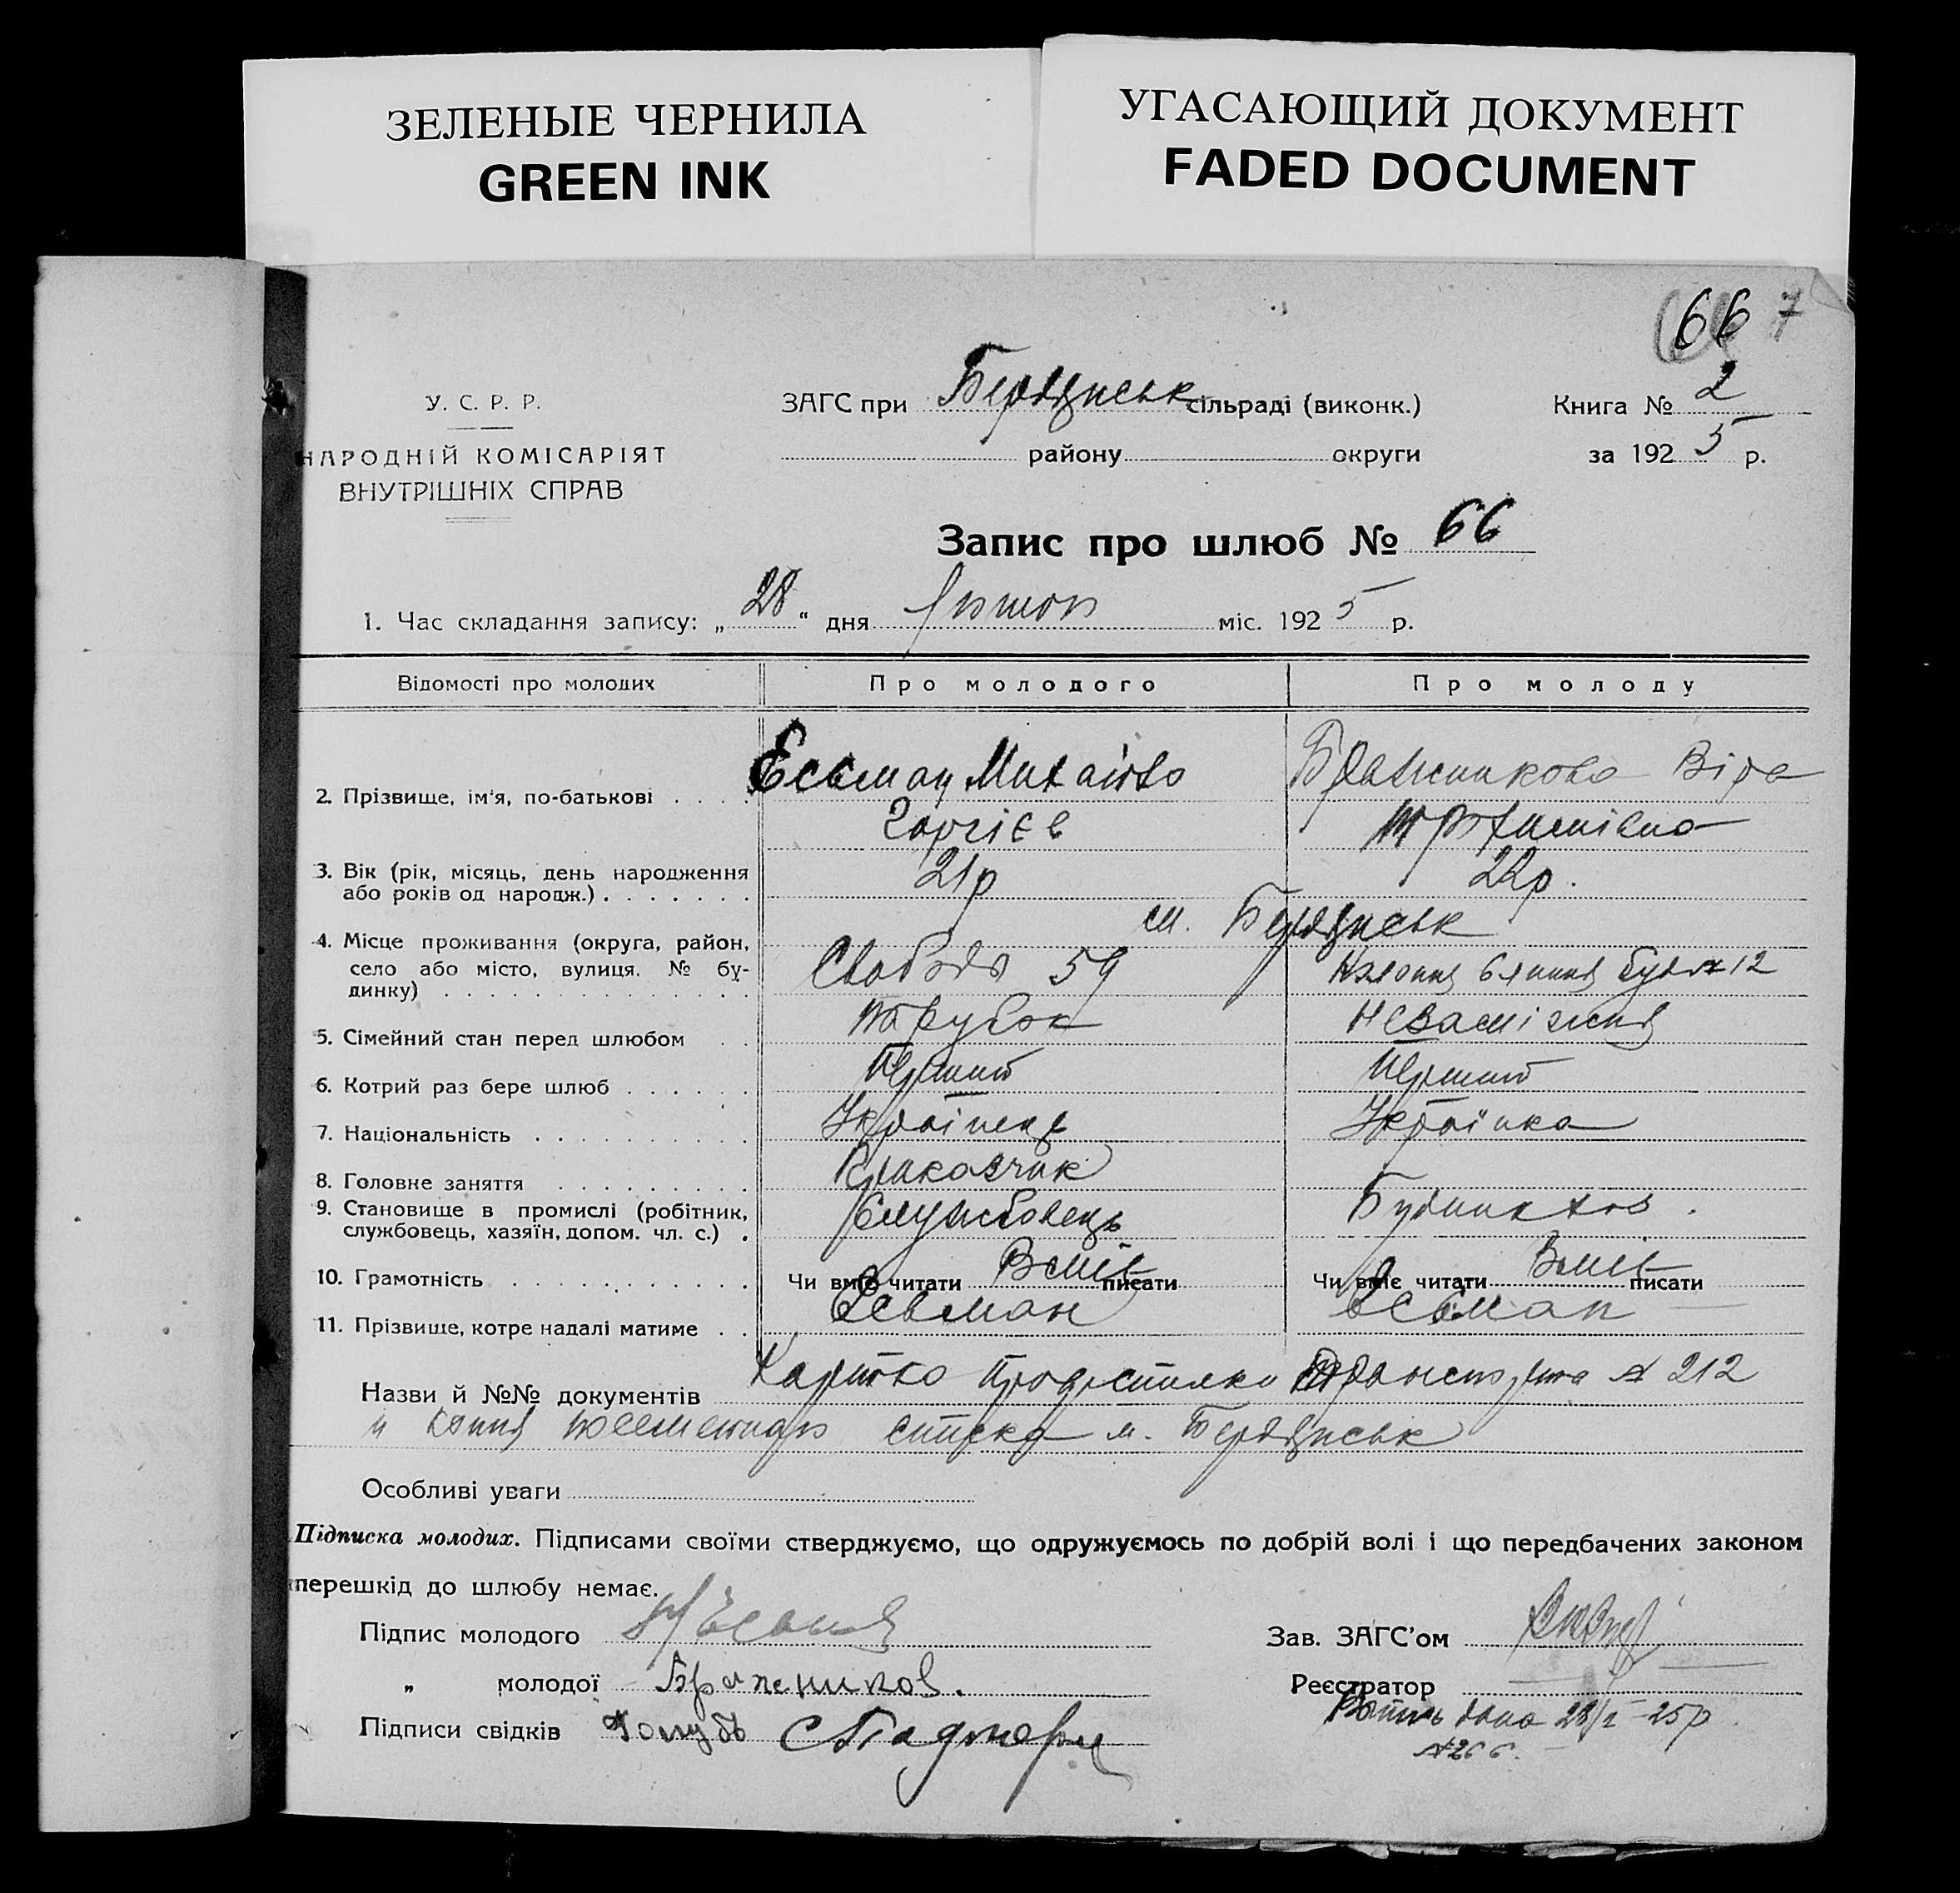 ЗЕЛЕНЫЕ ЧЕРНИЛА
GREEN INK
УГАСАЮЩИЙ ДОКУМЕНТ
FADED DOCUMENT
66 7
У. С. Р. Р.
НАРОДНІЙ КОМІСАРІЯТ
ВНУТРІШНІХ СПРАВ
ЗАГС при Бердянськ сільраді (виконк.)
району округи
Книга № 2
за 1925 р.
Запис про шлюб № 66
1. Час складання запису: „28“ дня міс. 1925 р.
Відомості про молодих Про молодого Про молоду
2. Прізвище, ім'я, по-батькові . . . . Есьман Михайло Бражникова Віра
3. Вік (рік, місяць, день народження
або років од народж.) . . . . . . . 21р 22р.
м. Бердянськ
4. Місце проживання (округа, район,
село або місто, вулиця. № бу-
динку) . . . . . . . . . . . . . . Свободи 59 12
5. Сімейний стан перед шлюбом . . Парубок Незаміжня
6. Котрий раз бере шлюб . . . . . . Перший Перший
7. Національність . . . . . . . . . . Українець Українка
8. Головне заняття . . . . . . . . . Приказчик
9. Становище в промислі (робітник,
службовець, хазяїн, допом. чл. с.) . Службовець
10. Грамотність . . . . . . . . . . . Чи вміє читати Вміє писати Чи вміє читати Вміє писати
11. Прізвище, котре надалі матиме . . Есьман Есьман
Назви й №№ документів Картка 212
списка м. Бердянськ
Особливі уваги
Підписка молодих. Підписами своїми стверджуємо, що одружуємось по добрій волі і що передбачених законом
перешкід до шлюбу немає.
Підпис молодого
„ молодої Бражников.
Підписи свідків Голубь
Зав. ЗАГС'ом
Реєстратор